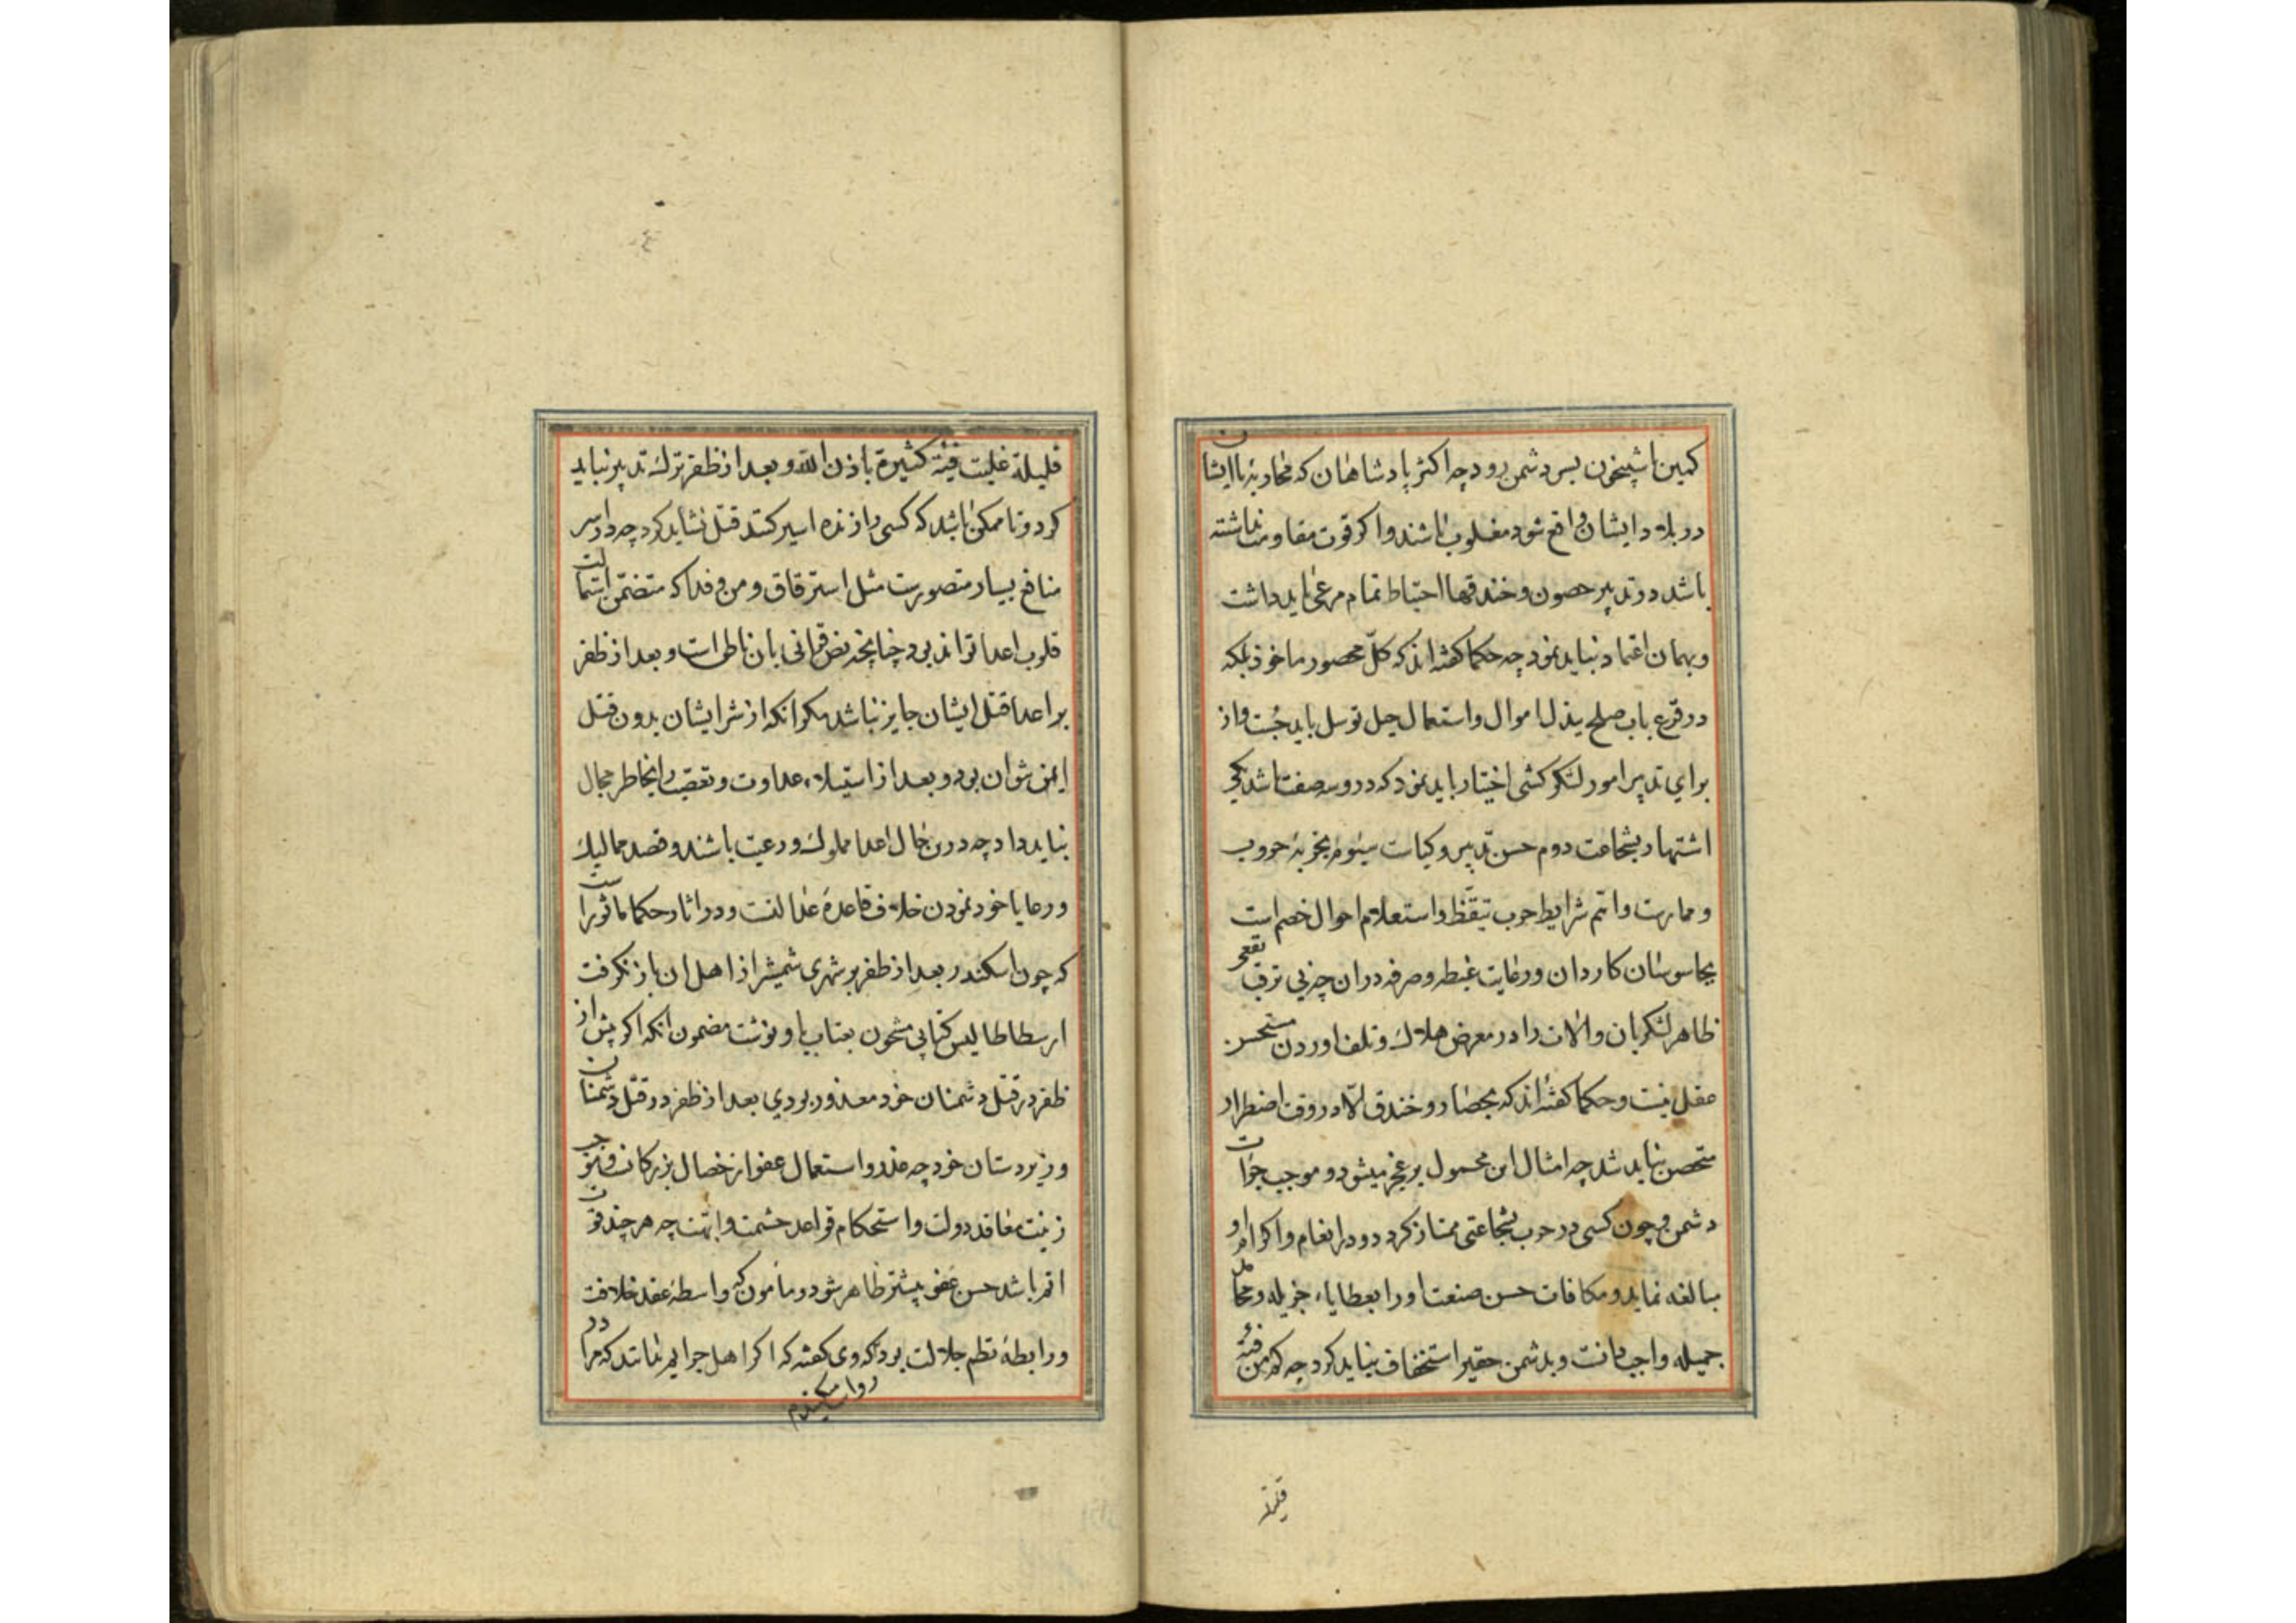 کمین یا شبیخون بسر دشمن رود چه اکثر پادشاهان که محاربه با ایشان
در بلاد ایشان واقع شود مغلوب باشند و اکر قوت مقاومت نداشته
باشد در تدبیر حصون و خندقها احتیاط تمام مرعی باید داشت
و بهمان اعتماد نباید نمود چه حکما کفته اند که کلّ محصور ماخوذ بلکه
در قرع باب صلح ببذل اموال و استعمال حیل توسل باید جُست و از
برای تدبیر امور لشکر کشی اختیار باید نمود که در و سه صفت باشد یکی
اشتهار بشجاعت دوم حسن تدبیر و کیاست سیوم تجربهٔ حروب
و ممارست و اتم شرایط حرب تیقّظ و استعلام احوال خصم است
بجاسوسان کاردان و رعایت غبطه و صرفه در ان چه بی ترقب نفعی
ظاهر لشکریان و الات را در معرض هلاك و تلف اوردن مستحسن
عقل نیست و حکما کفته اند که بحصار و خندق الّا در وقت اضطرار
متحصن نباید شد چه امثال این محمول بر عجز میشود و موجب جرات
دشمن و چون کسی در حرب بشجاعتی ممتاز کردد در انعام و اکرام او
مبالغه نماید و مکافات حسن صنعت او را بعطایاء جزیله و محامل
جمیله واجب دانست و بدشمن حقیر استخفاف نباید کرد چه کم من فئة
قلیلة
قلیلة غلبت فئة کثیرة باذن الله و بعد از ظفر ترك تدبیر نباید
کرد و تا ممکن باشد که کسی را زنده اسیر کنند قتل نشاید کرد چه در اسر
منافع بسیار متصورست مثل استرقاق و من و فدا که متضمن استمالت
قلوب اعدا تواند بود چنانچه نص قرانی بان ناطق است و بعد از ظفر
بر اعدا قتل ایشان جایز نباشد مکر انکه از شر ایشان بدون قتل
ایمن نتوان بود و بعد از استیلاء عداوت و تعصب را بخاطر مجال
نباید داد چه درین حال اعدا مملوك و رعیت باشند و قصد ممالیك
و رعایا خود نمودن خلاف قاعدهٔ عدالتست و در اثار حکما ماثورست
که چون اسکندر بعد از ظفر بر شهری شمشیر از اهل ان باز نکرفت
ارسطاطالیس کتابی مشحون بعتاب باو نوشت مضمون انکه اکر پیش از
ظفر در قتل دشمنان خود معذور بودی بعد از ظفر در قتل دشمنان
و زیردستان خود چه عذر و استعمال عفو از خصال بزرکانست و موجب
زینت معاقد دولت و استحکام قواعد حشمت و ابهت چه هر چند قوت
اتم باشد حسن عفو بیشتر ظاهر شود و مأمون که واسطهٔ عقد خلافت
و رابطهٔ نظم جلالت بود کوی کفته که اکر اهل جرایم بدانند که مرا در